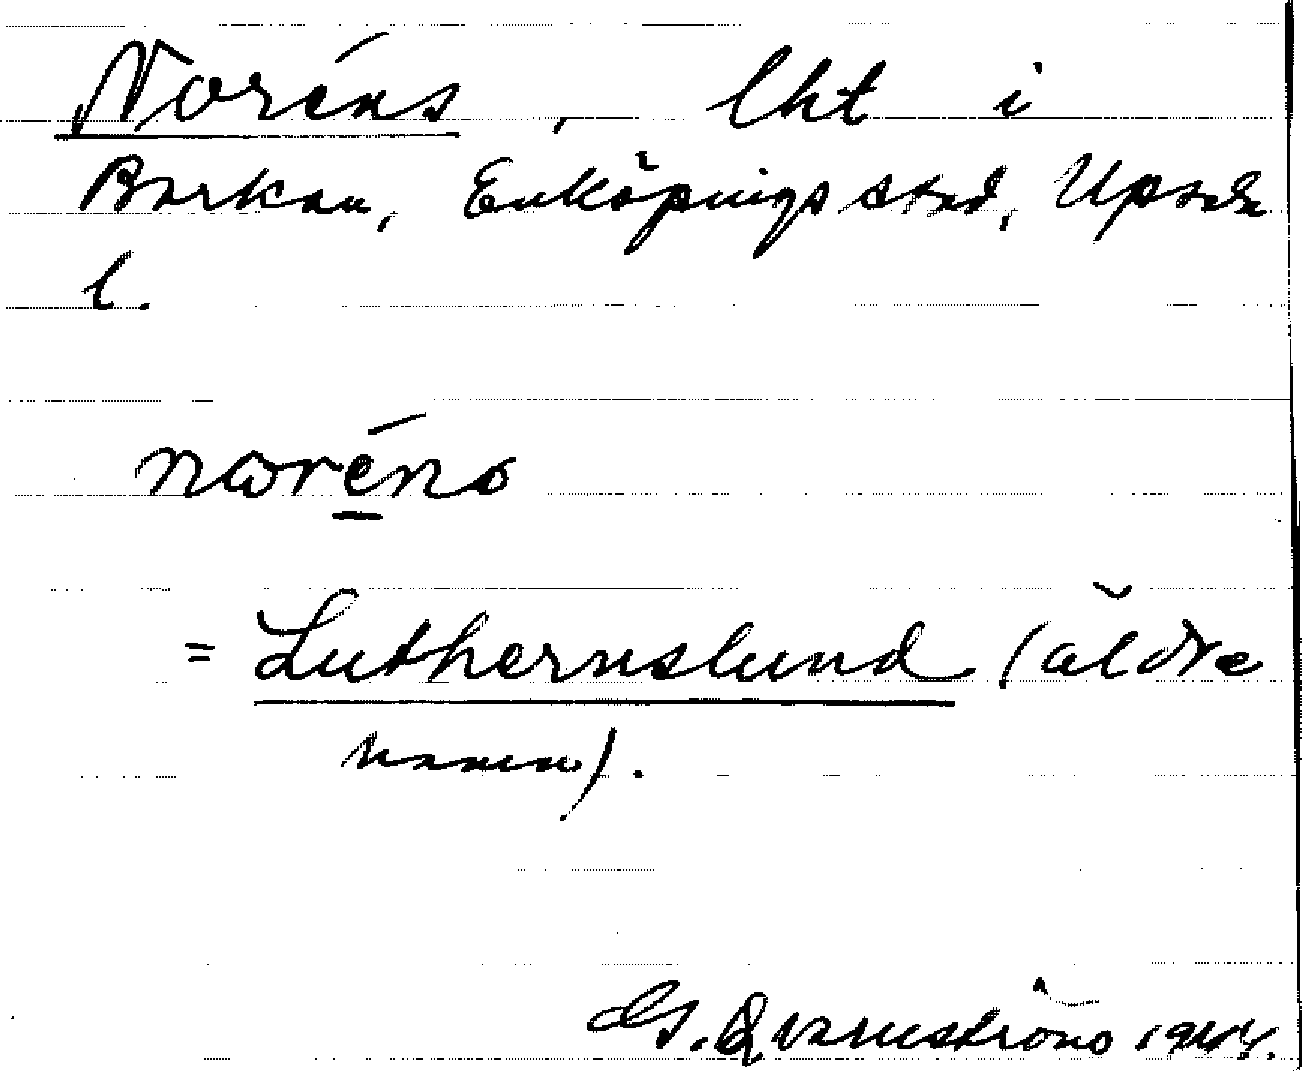 Noréns, lht i
Borkan, Enköpings stad, Upsala
l.
noréns
= Luthernslund (äldre
namn).
G. Qvarnström 1944.